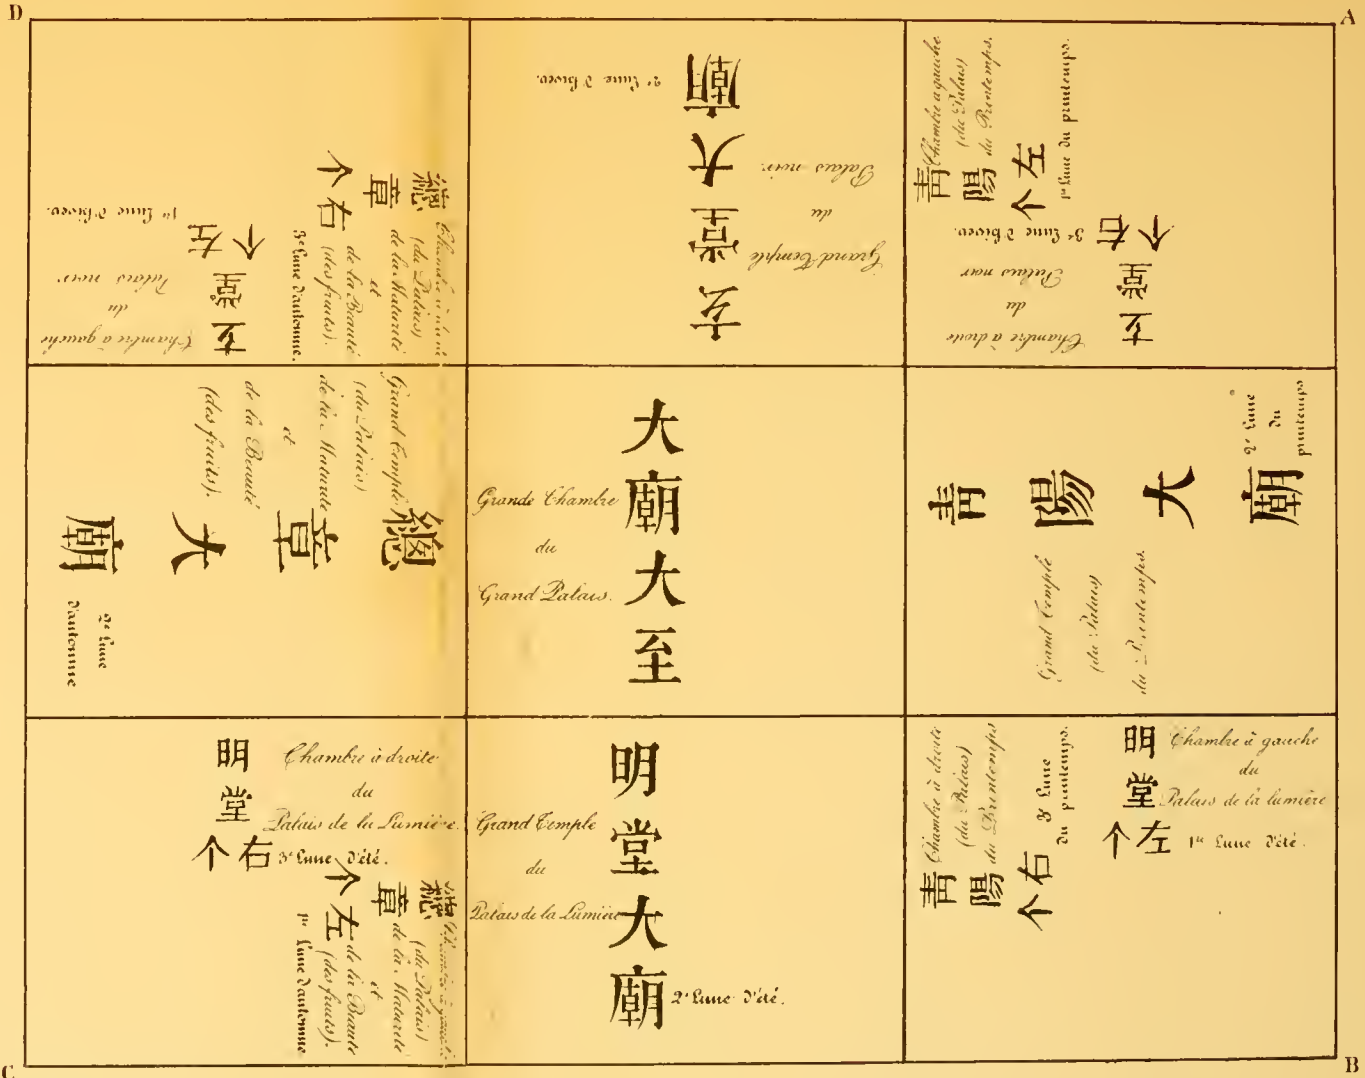 D
A
玄
堂
大
廟
Grand Temple
du
Palais noir.
2e Lune d'hiver.
玄
堂
左个
Chambre à gauche
du
Palais noir.
1re Lune d'hiver.
總
章
右个
(du Palais)
de la Maturité
et
de la Beauté
(des fruits).
3e Lune d'automne.
青
陽
左个
Chambre à gauche
(du Palais)
du Printemps.
1re Lune du printemps.
玄
堂
右个
Chambre à droite
du
Palais noir
3e Lune d'hiver.
總
章
大
廟
Grand Temple
(du Palais)
de la Maturité
et
de la Beauté
(des fruits).
2e Lune
d'automne
大
廟
大
至
Grande Chambre
du
Grand Palais.
青
陽
大
廟
Grand Temple
(du Palais)
du Printemps.
2e Lune
du
printemps
明
堂
右个
Chambre à droite
du
Palais de la Lumière.
3e Lune d'été.
總
章
左个
(du Palais)
de la Maturité
et
de la Beauté
(des fruits).
1re Lune d'automne
明
堂
大
廟
Grand Temple
du
Palais de la Lumière
2e Lune d'été.
青
陽
右个
Chambre à droite
(du Palais)
du Printemps
3e Lune
du printemps.
明
堂
左个
Chambre à gauche
du
Palais de la lumière
1re Lune d'été.
C
B